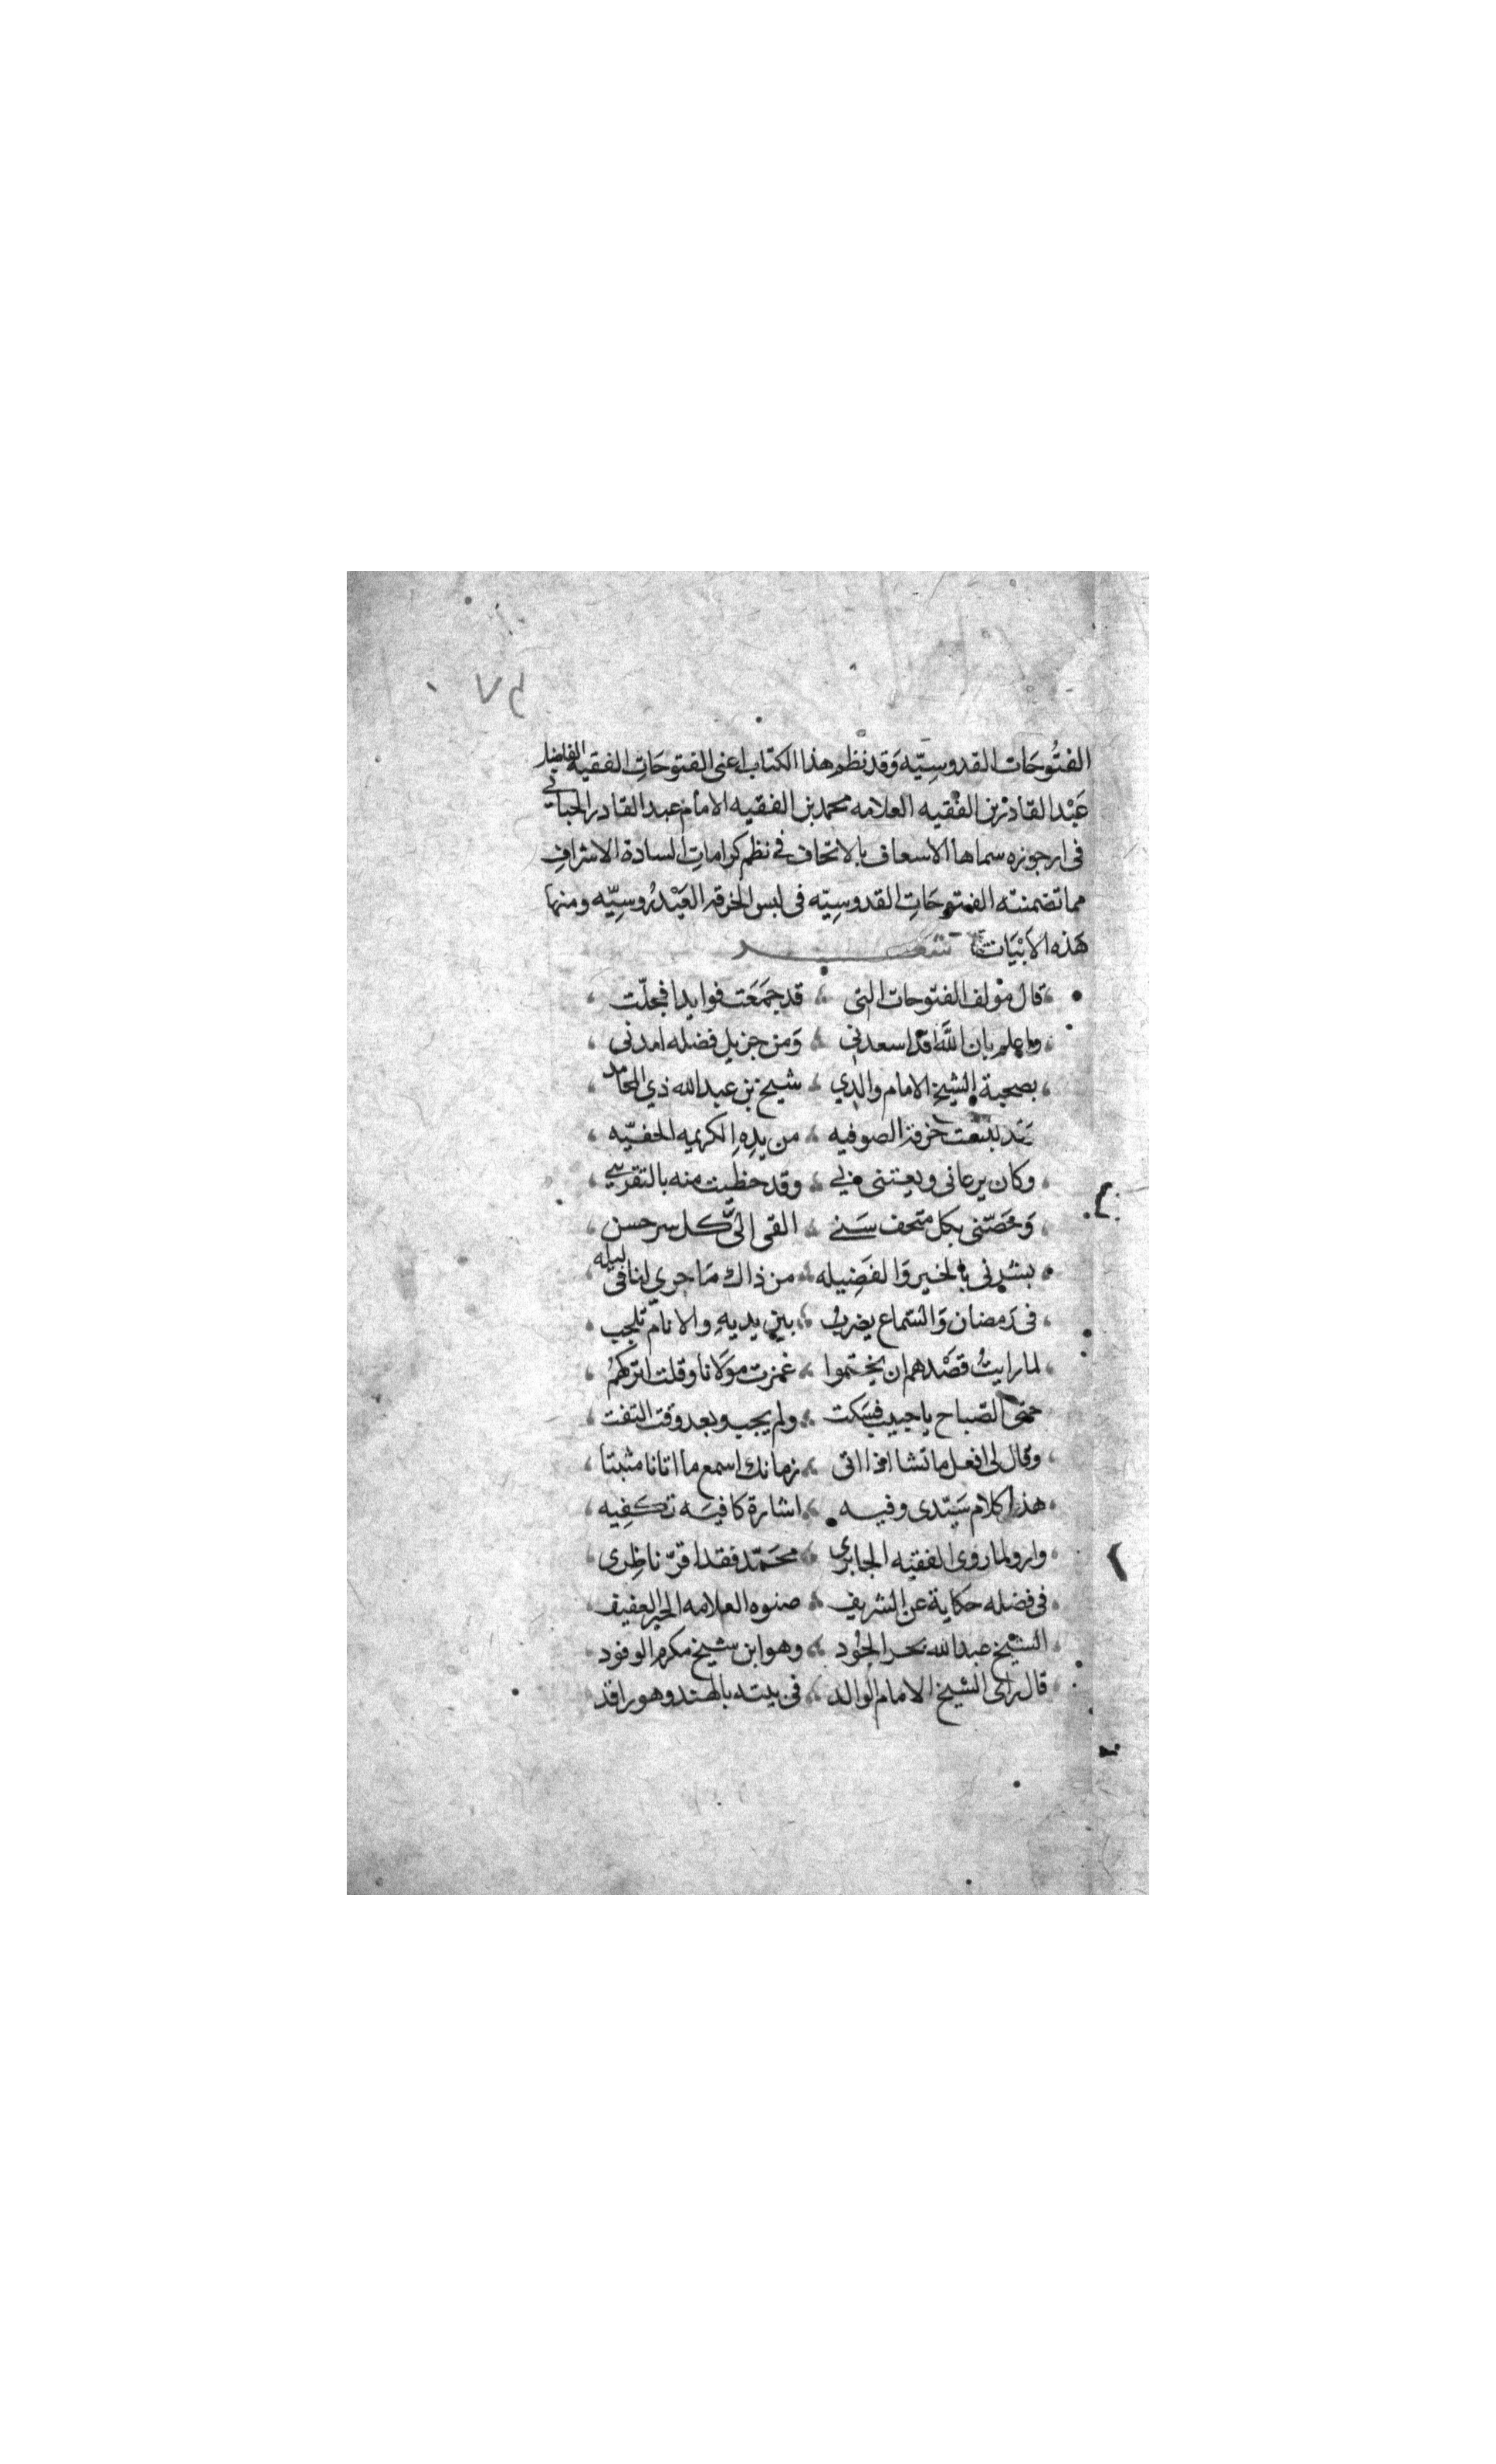 ٧٥
الفتُوحَات القدوسِيّه وَقد نظم هذا الكتاب اعنى الفتوحَاتِ الفقيه الفاضل
عَبْد القادر بن الفقيه العلامه محمد بن الفقيه الامام عبد القادر الحباني
فى ارجوزه سماها الاسعاف بالاتحاف فى نظم كراماتِ السادة الاشرافِ
مما تضمنته الفتوحَاتِ القدوسِيّه فى لبس الخرقه العَيْدرُوسِيّه ومنها
هَذه الابْيَات شعـــر
قال مؤلف الفتوحات التى قد جمَعَت فوايدا فجلّت
واعلم بان اللَّه قد اسعدنى وَمن جزيل فضله امدنى
بصحبة الشيخ الامام والدي شيخ بن عبد الله ذي المحامد
قد لبست خرقة الصوفيه من يدِهِ الكريمه الحفيّه
وكان يرعانى ويعتنى بي وقد حظيت منه بالتقريب
وَخصّنى بكل متحف سَنے القى الىَّ كل سر حسن
بشرنى بالخير وَالفَضِيله من ذاك مَا جرى لنا فى ليله
فى رَمضان وَالسّماع يضربُ بين يديهِ والانام تلجب
لما رايتُ قصْدهم ان يختموا غمزت موَلانا وقلت اتركهمُ
حتى الصّباح يا حبيب فسَكت ولم يجب وبعد وقت التفت
وقال لى افعل ما تشا اذا اتى زمانك اسمع ما اتانا مثبتا
هذا كلام سَيّدى وفيه اشارة كافيَه تكفِيه
وارو لما روى الفقيه الجابرى محَمّد فقد اقرّ ناظِرى
فى فضله حكاية عن الشريف صنوه العلامه الحبر العفيف
الشيخ عبد الله بحر الجُود وهو ابن شيخ مكرم الوفود
قال راى الشيخ الامام الوالد فى بيته بالهند وهو راقد